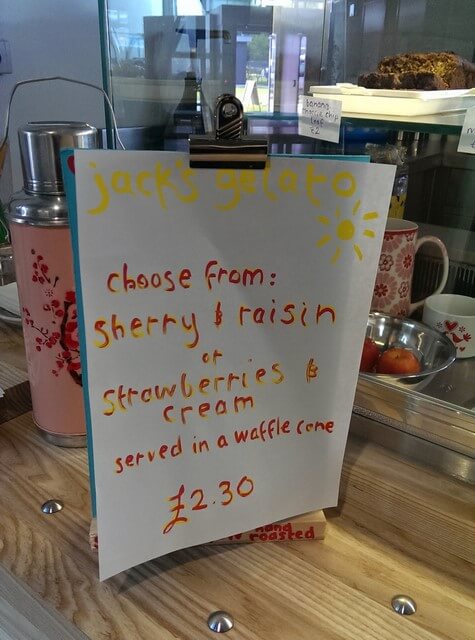 banana
choc chip
loaf
£2
jack's gelato
choose from:
sherry & raisin
or
strawberries &
cream
served in a waffle cone
£2.30
hand
roasted